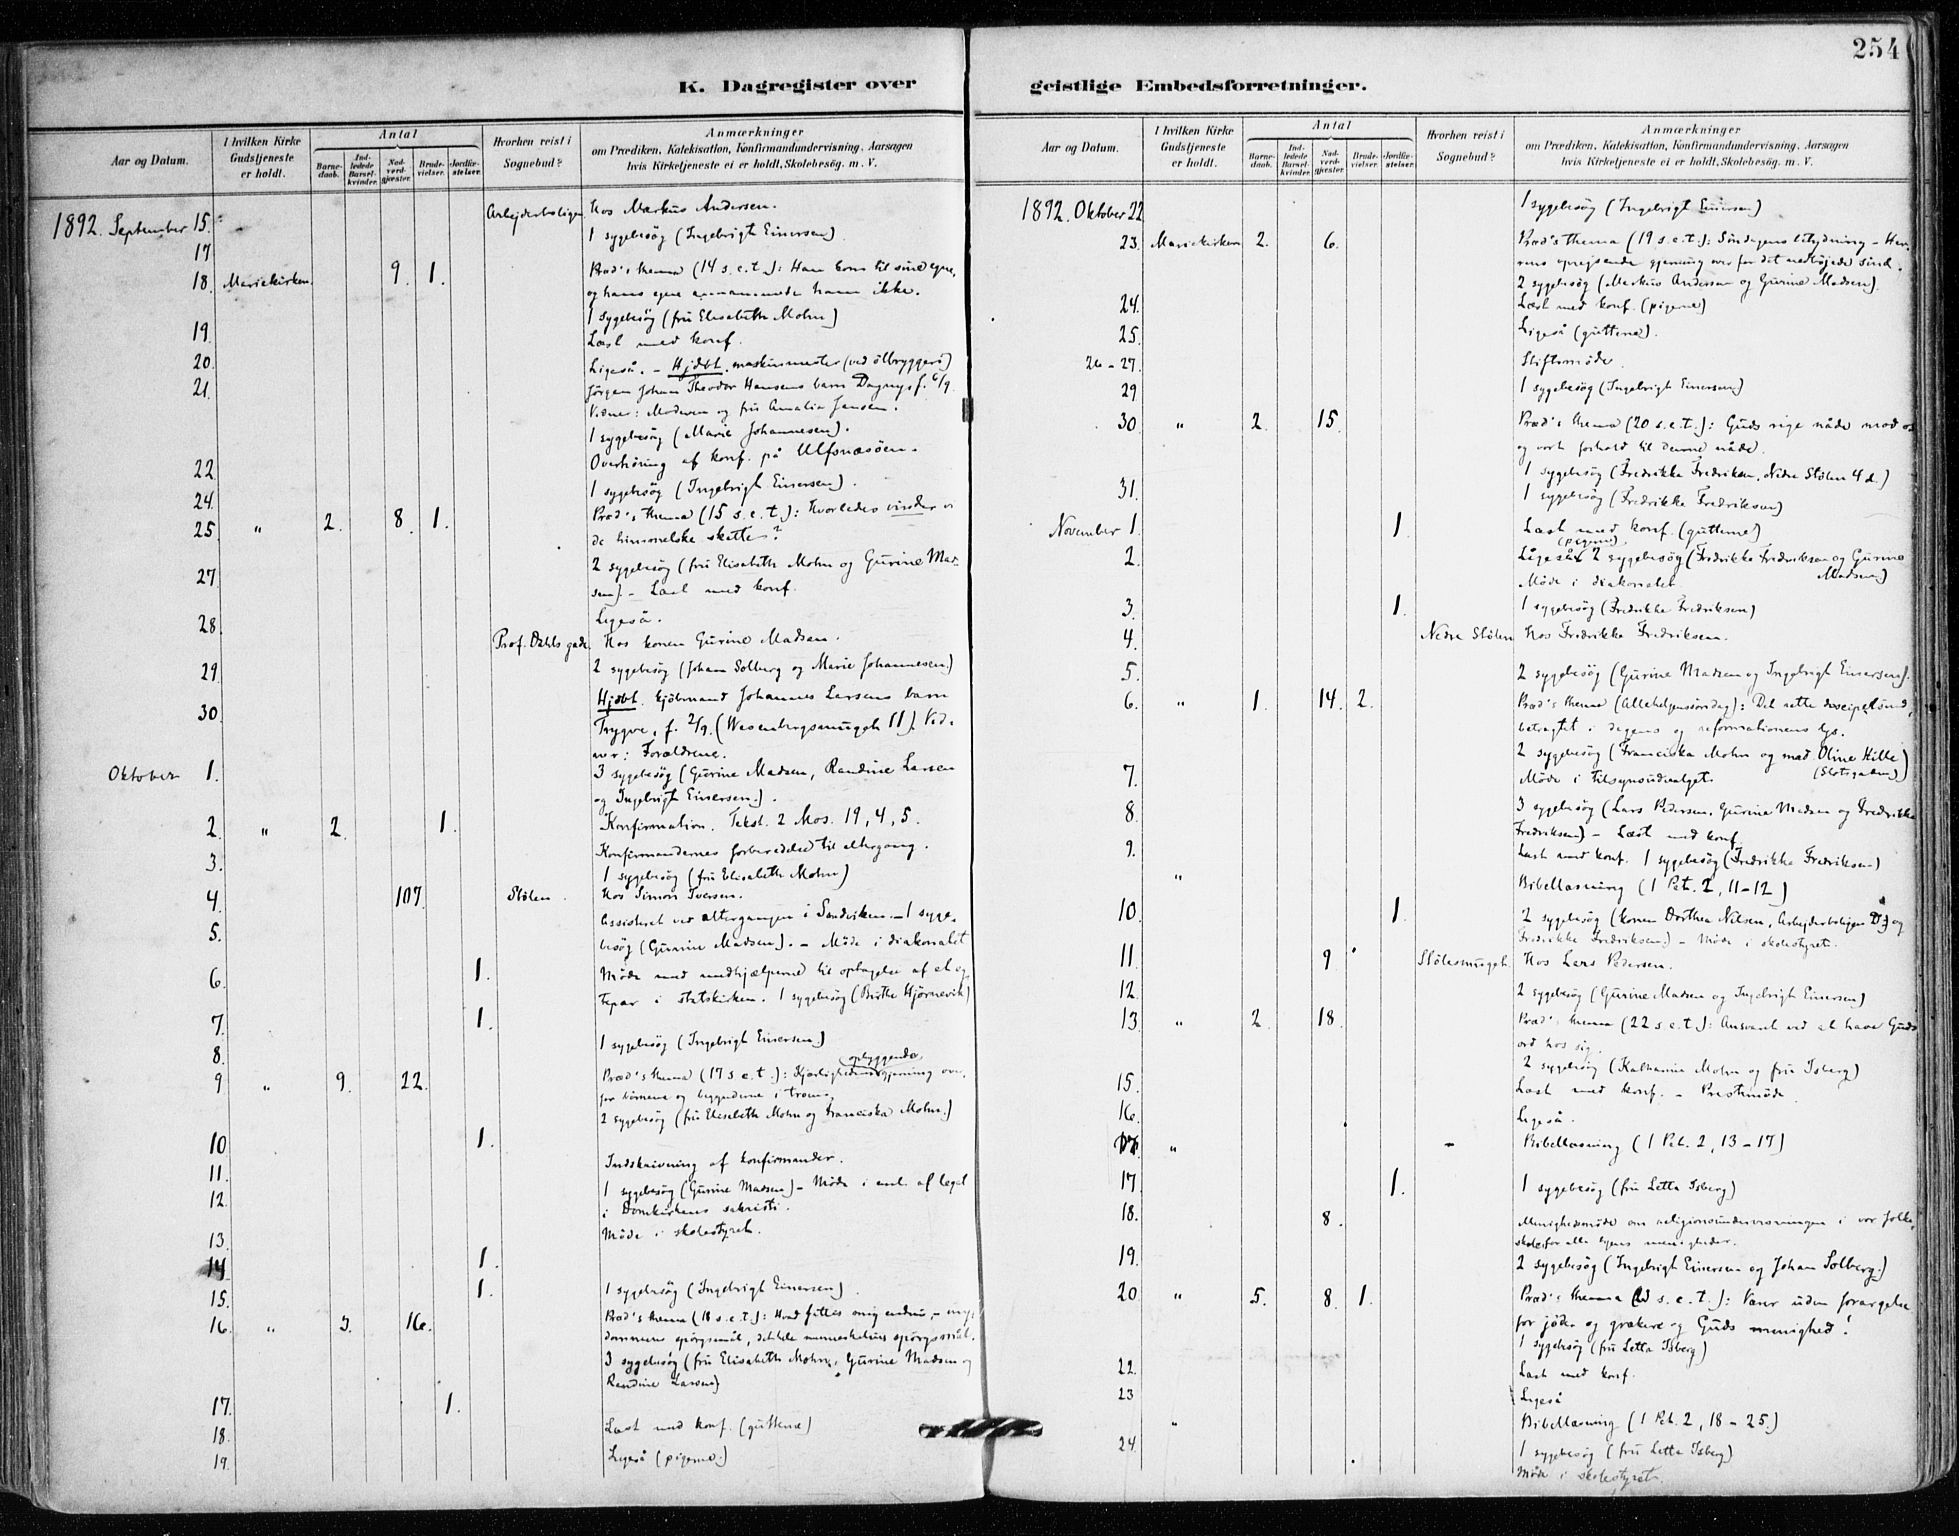 254
K. Dagregister over geistlige Embedsforretninger.
Aar og Datum. I hvilken Kirke Gudstjeneste er holdt. Antal Barnedaab. Indledede Barselkvinder. Nadverdgjæster. Brudevielser. Jordfæstelser. Hvorhen reist i Sognebud? Anmærkninger om Prædiken, Katekisation, Konfirmandundervisning, Aarsagen hvis Kirketjeneste ei er holdt, Skolebesøg. m. V.
1892. September 15. Arbejderboligen. Hos Markus Andersen.
17 1 sygebesøg (Ingebrigt Einersen)
18. Mariekirken. 9. 1. Præd's thema (14 s. e. t.): Han kom til sine egne,
og hans egne annammede ham ikke.
1 sygebesøg (fru Elisabeth Mohn)
19. Læst med konf.
20. Ligeså. – Hjdbt. maskinmester (ved ølbryggeri)
21. Jørgen Johan Theodor Hansens barn Dagny, f. 6/9.
Vidner: Moderen og fru Amalia Jensen.
1 sygebesøg (Marie Johannesen).
22 Overhøring af konf. på Ulfsnæsøen.
24. 1 sygebesøg (Ingebrigt Einersen).
25 " 2. 8. 1. Præd's thema (15 s. e. t.): Hvorledes vinder vi
de himmelske skatte?
27. 2 sygebesøg (fru Elisabeth Mohn og Gurine Mad-
sen). – Læst med konf.
28. Ligeså.
Prof. Dahls gade. Hos konen Gurine Madsen.
29. 2 sygebesøg (Johan Solberg og Marie Johannesen.)
30. Hjdbt. kjøbmand Johannes Larsens barn
Trygve, f. 2/9. (Wesenbergsmuget 11). Vid-
ner: Forældrene.
Oktober 1. 3 sygebesøg (Gurine Madsen, Randine Larsen
og Ingebrigt Einersen.).
2. " 2. 1. Konfirmation. Tekst. 2 Mos. 19, 4, 5.
3. Konfirmandernes forberedelse til altergang.
1 sygebesøg (fru Elisabeth Mohn)
4. 107. Stølen. Hos Simon Iversen.
5. Assisteret ved altergangen i Sandviken. – 1 syge-
besøg (Gurine Madsen). – Møde i diakonatet
6. 1. Møde med medhjælperne til optagelse af et æg-
tepar i statskirken. 1 sygebesøg (Birthe Hjørnevik)
7. 1.
8. 1 sygebesøg (Ingebrigt Einersen)
9 " 9. 22. Præd's thema (17 s. e. t.): Kjærlighedens opbyggende gjerning over-
for
2 sygebesøg (fru Elisabeth Mohn og Franciska Mohn.)
10 1.
11. Indskrivning af konfirmander.
12. 1 sygebesøg (Gurine Madsen) – Møde i anl. af legat
i Domkirkens sakristi.
13. Møde i skolestyret.
14 1.
15. 1. 1 sygebesøg (Ingebrigt Einersen)
16. " 3. 16. Præd's thema (18 s. e. t.): Hvad fattes mig endnu, – ung-
dommens spørgsmål, det hele menneskelivs spørgsmål.
3 sygebesøg (fru Elisabeth Mohn, Gurine Madsen og
Randine Larsen)
17. 1.
18. Læst med konf. (guttene)
19. Ligeså (pigerne.)
Aar og Datum. I hvilken Kirke Gudstjeneste er holdt. Antal Barnedaab. Indledede Barselkvinder. Nadverdgjæster. Brudevielser. Jordfæstelser. Hvorhen reist i Sognebud? Anmærkninger om Prædiken, Katekisation, Konfirmandundervisning, Aarsagen hvis Kirketjeneste ei er holdt, Skolebesøg. m. V.
1892. Oktober 22 1 sygebesøg (Ingebrigt Einersen)
23. Mariekirken 2. 6. Præd's thema (19 s. e. t.): Søndagens betydning – Her-
rens oprejsende gjerning over for det nedbøjede sind.
2 sygebesøg (Markus Andersen og Gurine Madsen).
24. Læst med konf. (pigerne)
25. Ligeså (guttene).
26 – 27. Stiftsmøde.
29 1 sygebesøg (Ingebrigt Einersen)
30 " 2. 15. Præd's thema (20 s. e. t.): Guds rige nåde mod os
og vort forhold til denne nåde.
1 sygebesøg (Fredrikke Fredriksen, Nedre Stølen 4 d.)
31. 1 sygebesøg (Fredrikke Fredriksen)
November 1. 1. Læst med konf. (guttene)
2. Ligeså (pigerne) 2 sygebesøg (Fredrikke Fredriksen og Gurine
Madsen)
Møde i diakonatet
3. 1. 1 sygebesøg (Fredrikke Fredriksen)
4. Nedre Stølen Hos Fredrikke Fredriksen.
5. 2 sygebesøg (Gurine Madsen og Ingebrigt Einersen).
6. " 1. 14. 2. Præd's thema (Allehelgensøndag): Det rette discipelsind,
betragtet i dagens og reformationens lys.
2 sygebesøg (Franciska Mohn og mad. Oline Hille)
(Slotsgaden)
7. Møde i tilsynsudvalget.
8. 3 sygebesøg (Lars Pedersen, Gurine Madsen og Fredrikke
Fredriksen) – Læst med konf.
9. Læst med konf. 1 sygebesøg (Fredrikke Fredriksen)
" Bibellæsning (1 Pet. 2, 11–12)
10. 1. 2 sygebesøg (konen Dorthea Nilsen, Arbejderboligen D) og
Fredrikke Fredriksen.) – Møde i skolestyret.
11. 9 Stølesmuget. Hos Lars Pedersen.
12. 2 sygebesøg (Gurine Madsen og Ingebrigt Einersen)
13 " 2. 18. Præd's thema (22 s. e. t.): Ansvaret ved at have Guds
ord hos sig.
2 sygebesøg (Kathanine Mohn og fru Isberg)
15. Læst med konf. – Prestemøde.
16. Ligeså.
" Bibellæsning (1 Pet. 2, 13–17)
17. 1. 1 sygebesøg (fru Letta Isberg)
18. 8. Menighedsmøde om religionsundervisningen i vor folke-
skole for alle byens menigheder.
19. 2 sygebesøg (Ingebrigt Einersen og Johan Solberg.)
20 " 5. 8. 1. Præd's thema (23 s. e. t.): Værer uden forargelse
for jøder og grækere og Guds menighed!
1 sygebesøg (fru Letta Isberg)
22. Læst med konf.
23 Ligeså
" Bibellæsning (1 Pet. 2, 18–25.)
24. 1 sygebesøg (fru Letta Isberg)
Møde i skolestyret.